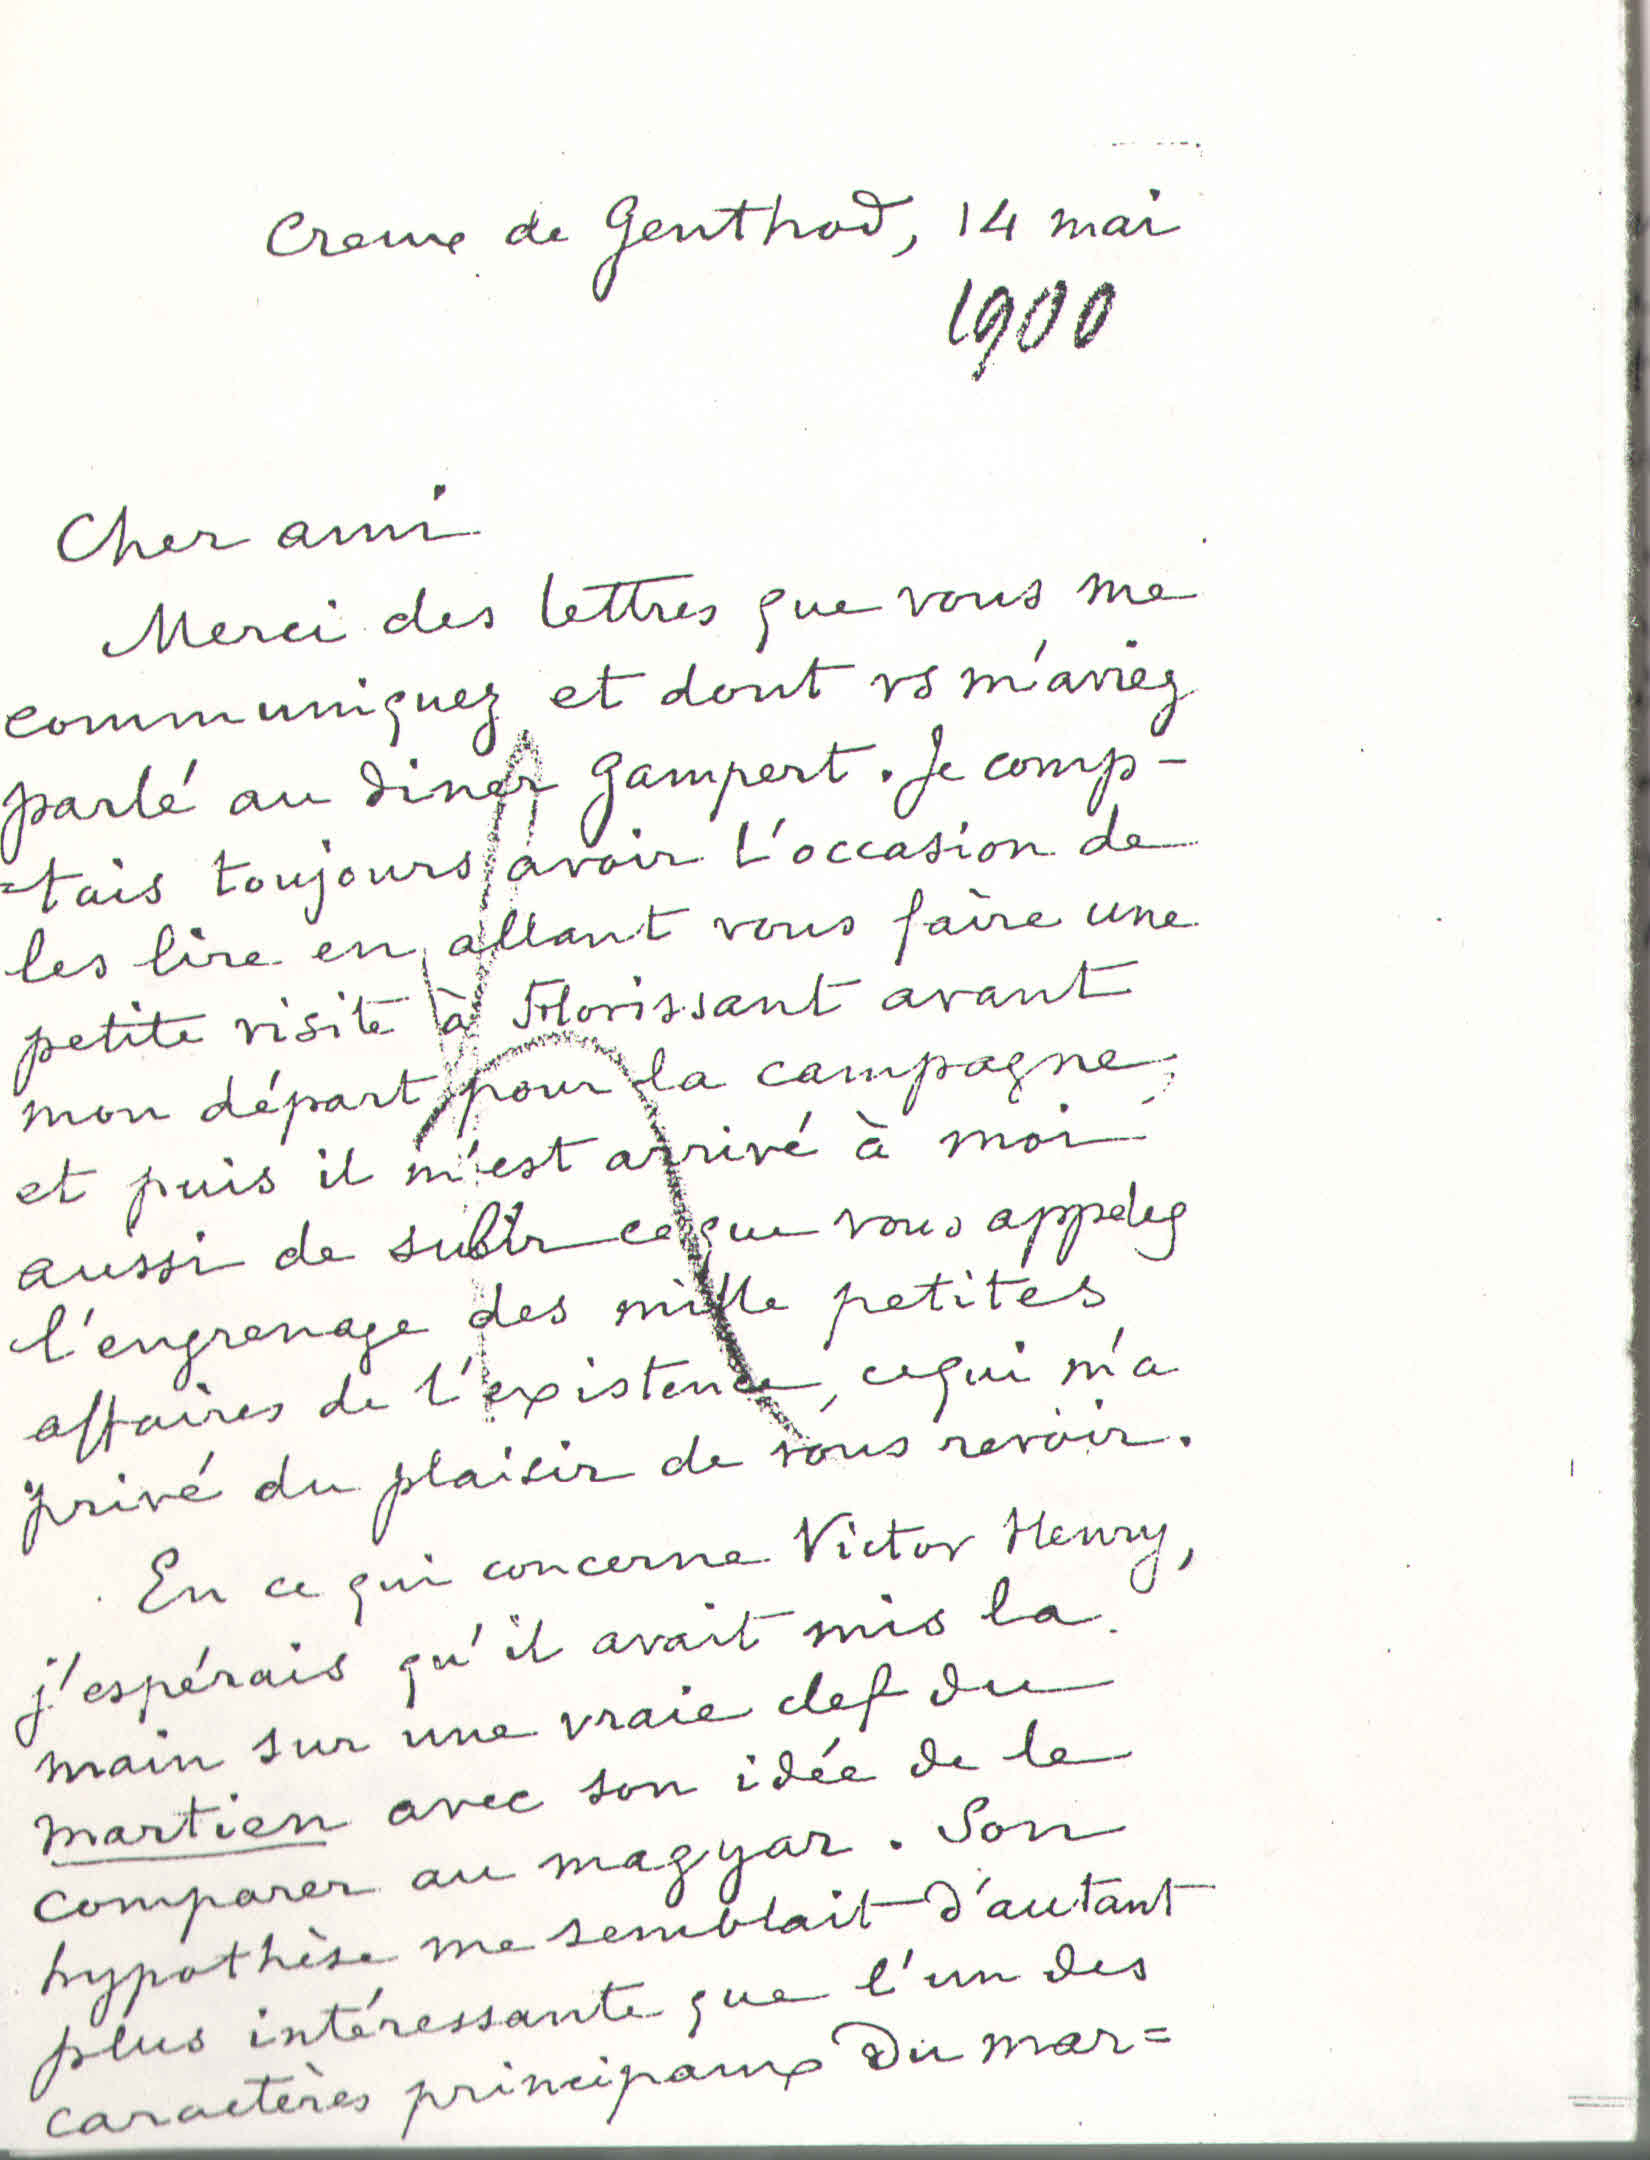 Creux de Genthod, 14 mai
1900
Cher ami
Merci des lettres que vous me
communiquez et dont vs m'aviez
parlé au diner Gampert. Je comp-
=tais toujours avoir l'occasion de
les lire en allant vous faire une
petite visite à Florissant avant
mon départ pour la campagne,
et puis il m'est arrivé à moi
aussi de subir ce que vous appelez
l'engrenage des mille petites
affaires de l'existence, ce qui m'a
privé du plaisir de vous revoir.
En ce qui concerne Victor Henry,
j'espérais qu'il avait mis la
main sur une vraie clef du
martien avec son idée de le
comparer au magyar. Son
hypothèse me semblait d'autant
plus intéressante que l'un des
caractères principaux du mar=